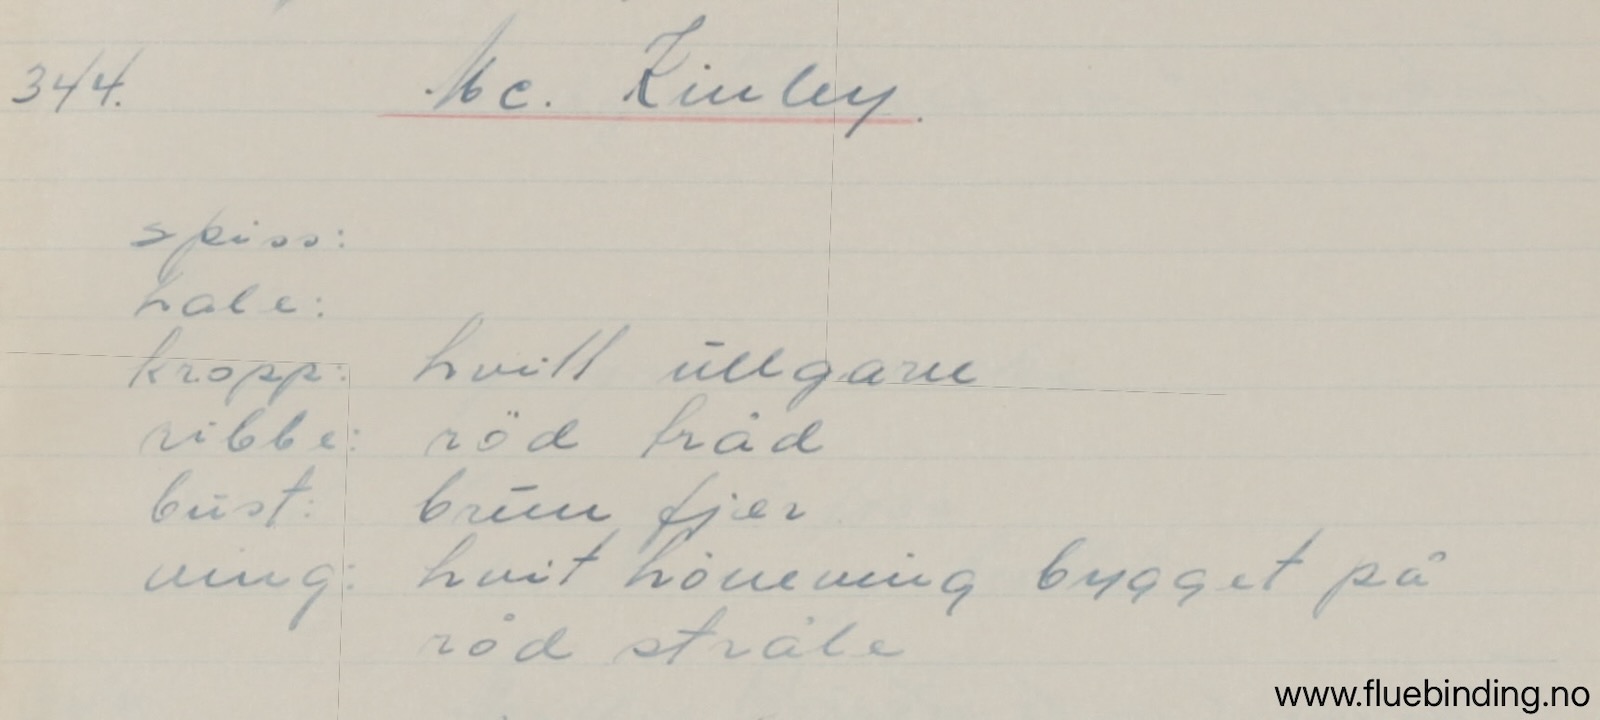 344. Mc. Kinley.
spiss:
hale:
kropp: hvitt ullgarn
ribbe: röd tråd
bust: brun fjer
ving: hvit höneving bygget på
röd stråle
www.fluebinding.no